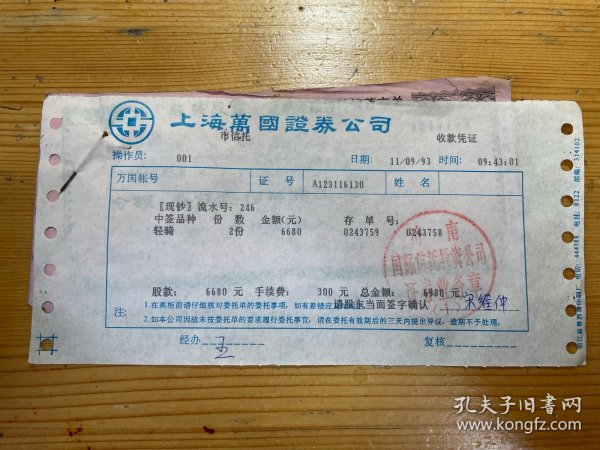 上海萬國證券公司
市信托 收款凭证
操作员: 001 日期: 11/09/93 时间: 09:43:01
万国帐号 证号 A123116130 姓名
〖现钞〗流水号: 246
中签品种 份数 金额(元) 存单号:
轻骑 2份 6680 0243759 0243758
南
国际信托投资公司
股款: 6680 元 手续费: 300 元 总金额: 6980 元
请股东当面签字确认
注: 1.在离柜前请仔细核对委托单的委托事项,如有差错应
2.如本公司因故未按委托单的要求履行委托事宜,请在委托有效期后的三天内提出异议,逾期不予处理。
经办 王 复核
孔夫子旧书网
www.kongfz.com